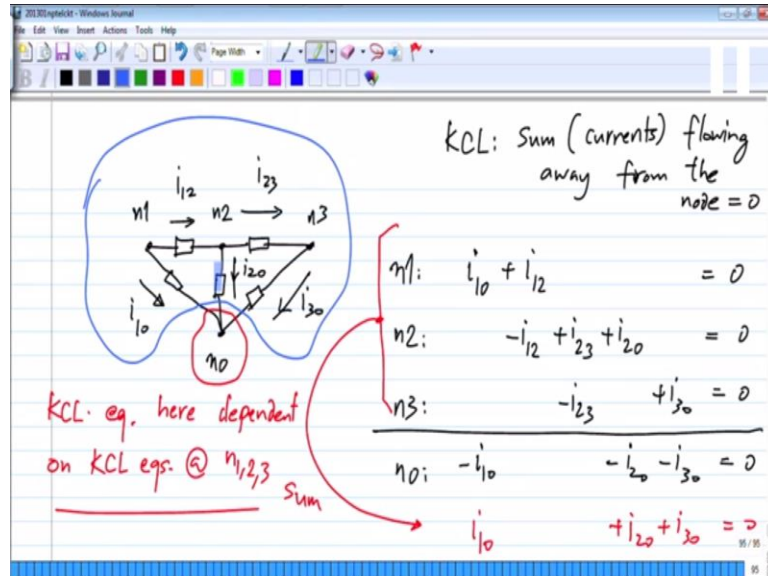 201301nptelckt - Windows Journal
File Edit View Insert Actions Tools Help
Page Width
B I
KCL: Sum (currents) flowing
away from the
node = 0
i12 i23
n1 n2 n3
i10 i20 i30
n0
n1: i10 + i12 = 0
n2: -i12 + i23 + i20 = 0
n3: -i23 + i30 = 0
n0: -i10 -i20 -i30 = 0
KCL eq. here dependent
on KCL eqs. @ n1,2,3
Sum
i10 + i20 + i30 = 0
95 / 95
95